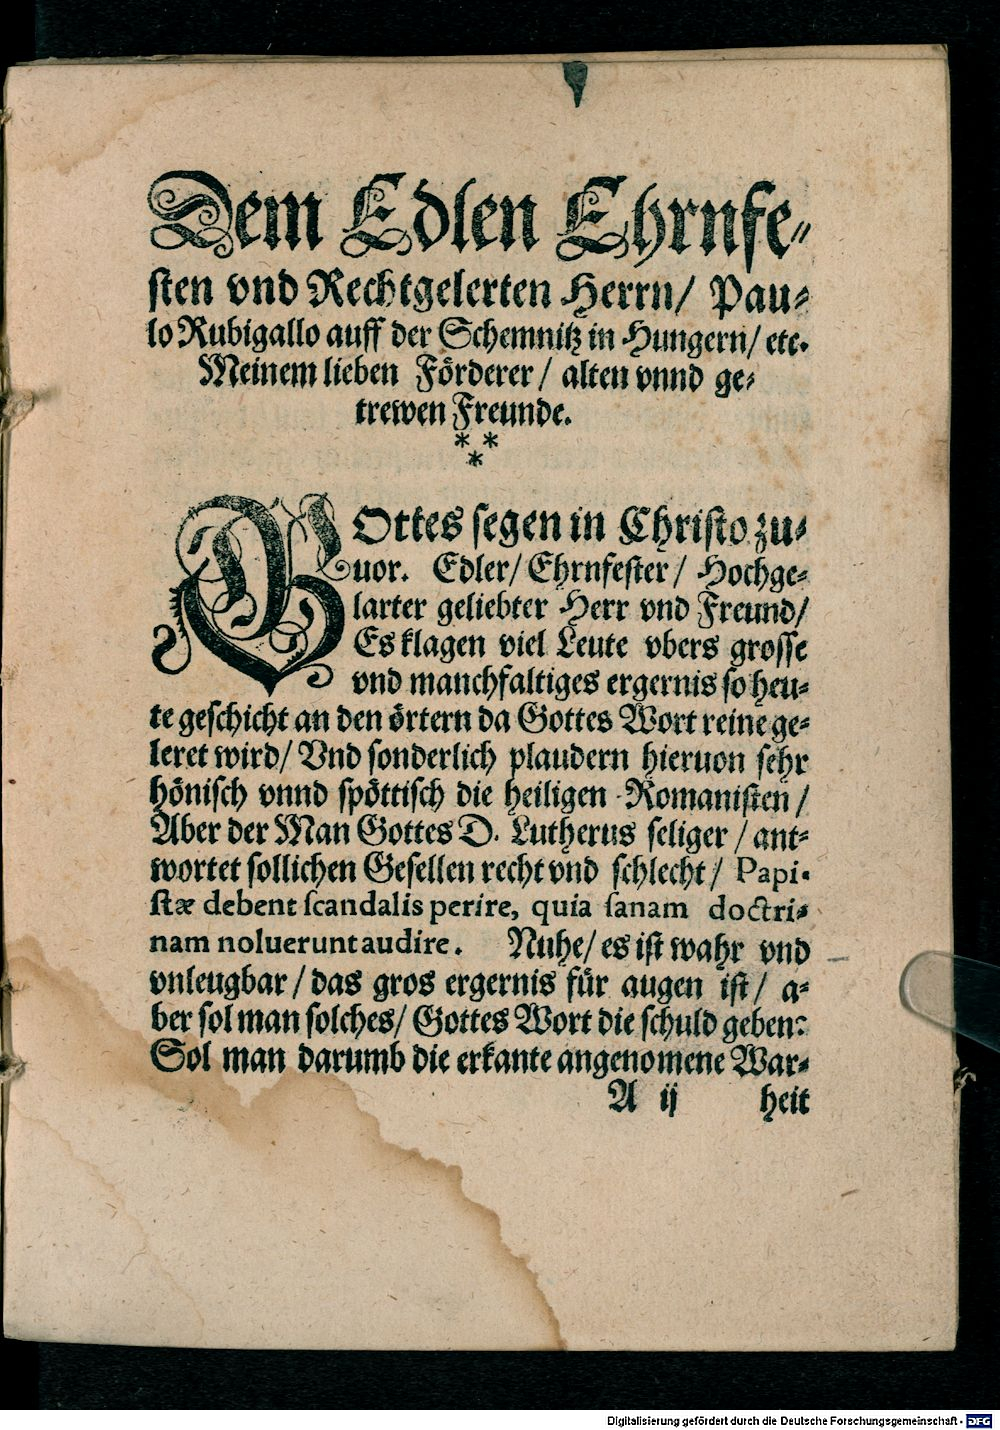 Dem Edlen Ehrnfe⸗
sten vnd Rechtgelerten Herrn/ Pau⸗
lo Rubigallo auff der Schemnitz in Hungern/ etc.
Meinem lieben Förderer/ alten vnnd ge⸗
trewen Freunde.
* *
*
GOttes segen in Christo zu⸗
uor. Edler/ Ehrnfester/ Hochge⸗
larter geliebter Herr vnd Freund/
Es klagen viel Leute vbers grosse
vnd manchfaltiges ergernis so heu⸗
te geschicht an den örtern da Gottes Wort reine ge⸗
leret wird/ Vnd sonderlich plaudern hieruon sehr
hönisch vnnd spöttisch die heiligen Romanisten/
Aber der Man Gottes D. Lutherus seliger/ ant⸗
wortet sollichen Gesellen recht vnd schlecht/ Papi⸗
stæ debent scandalis perire, quia sanam doctri⸗
nam noluerunt audire. Nuhe/ es ist wahr vnd
vnleugbar/ das gros ergernis für augen ist/ a⸗
ber sol man solches/ Gottes Wort die schuld geben?
Sol man darumb die erkante angenomene War⸗
A ij heit
Digitalisierung gefördert durch die Deutsche Forschungsgemeinschaft - DFG